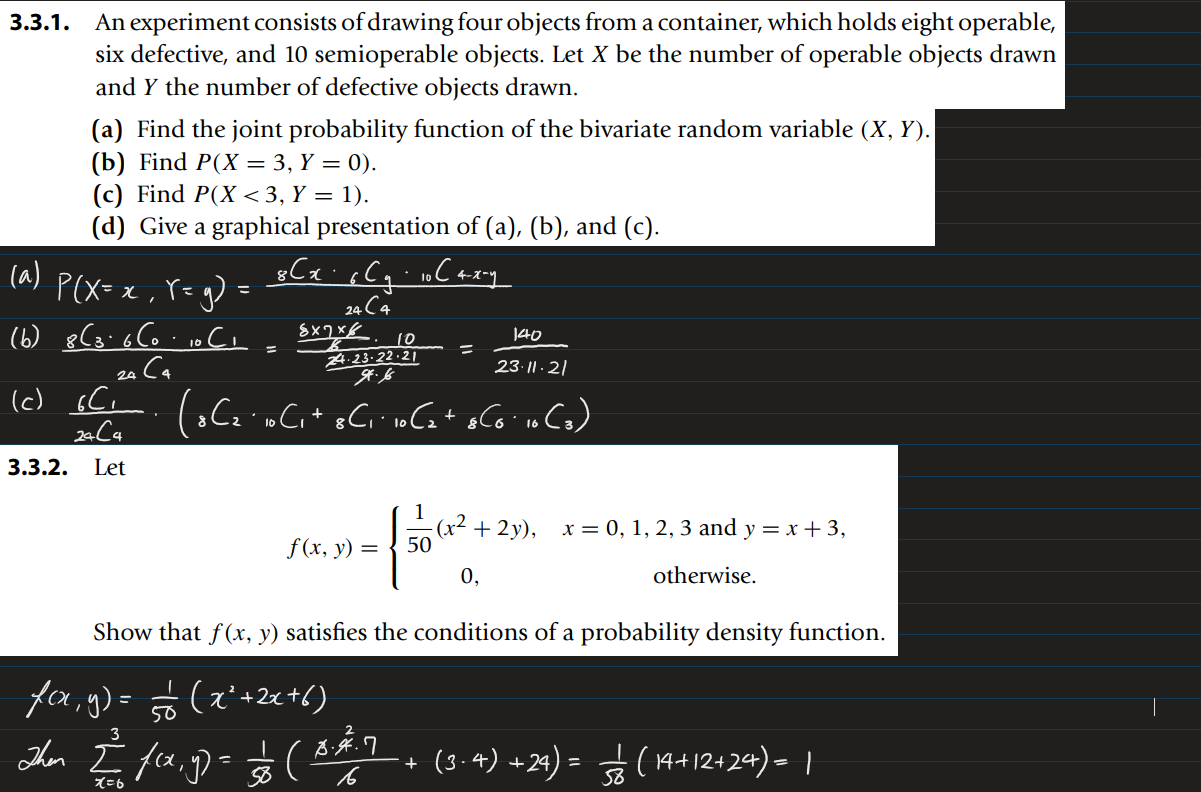 3.3.1. An experiment consists of drawing four objects from a container, which holds eight operable,
six defective, and 10 semioperable objects. Let X be the number of operable objects drawn
and Y the number of defective objects drawn.
(a) Find the joint probability function of the bivariate random variable (X, Y).
(b) Find P(X = 3, Y = 0).
(c) Find P(X < 3, Y = 1).
(d) Give a graphical presentation of (a), (b), and (c).
(a) P(X=x, Y=y) = ₈Cx · ₆Cy · ₁₀C₄₋x₋y / ₂₄C₄
(b) ₈C₃ · ₆C₀ · ₁₀C₁ / ₂₄C₄ = (8×7×6/6 · 10) / (24·23·22·21 / 4·6) = 140 / 23·11·21
(c) ₆C₁ / ₂₄C₄ · (₈C₂ · ₁₀C₁ + ₈C₁ · ₁₀C₂ + ₈C₀ · ₁₀C₃)
3.3.2. Let
f(x, y) = { 1/50 (x² + 2y), x = 0, 1, 2, 3 and y = x + 3,
0, otherwise.
Show that f(x, y) satisfies the conditions of a probability density function.
f(x,y) = 1/50 (x²+2x+6)
Then Σ x=0 3 f(x,y) = 1/50 (3·4·7 / 6 2 + (3·4) + 24) = 1/50 (14+12+24) = 1